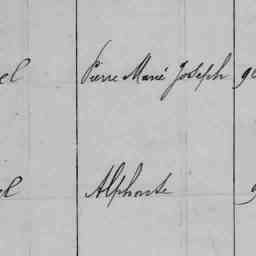 el Pierre Marie Joseph
el Alphonse